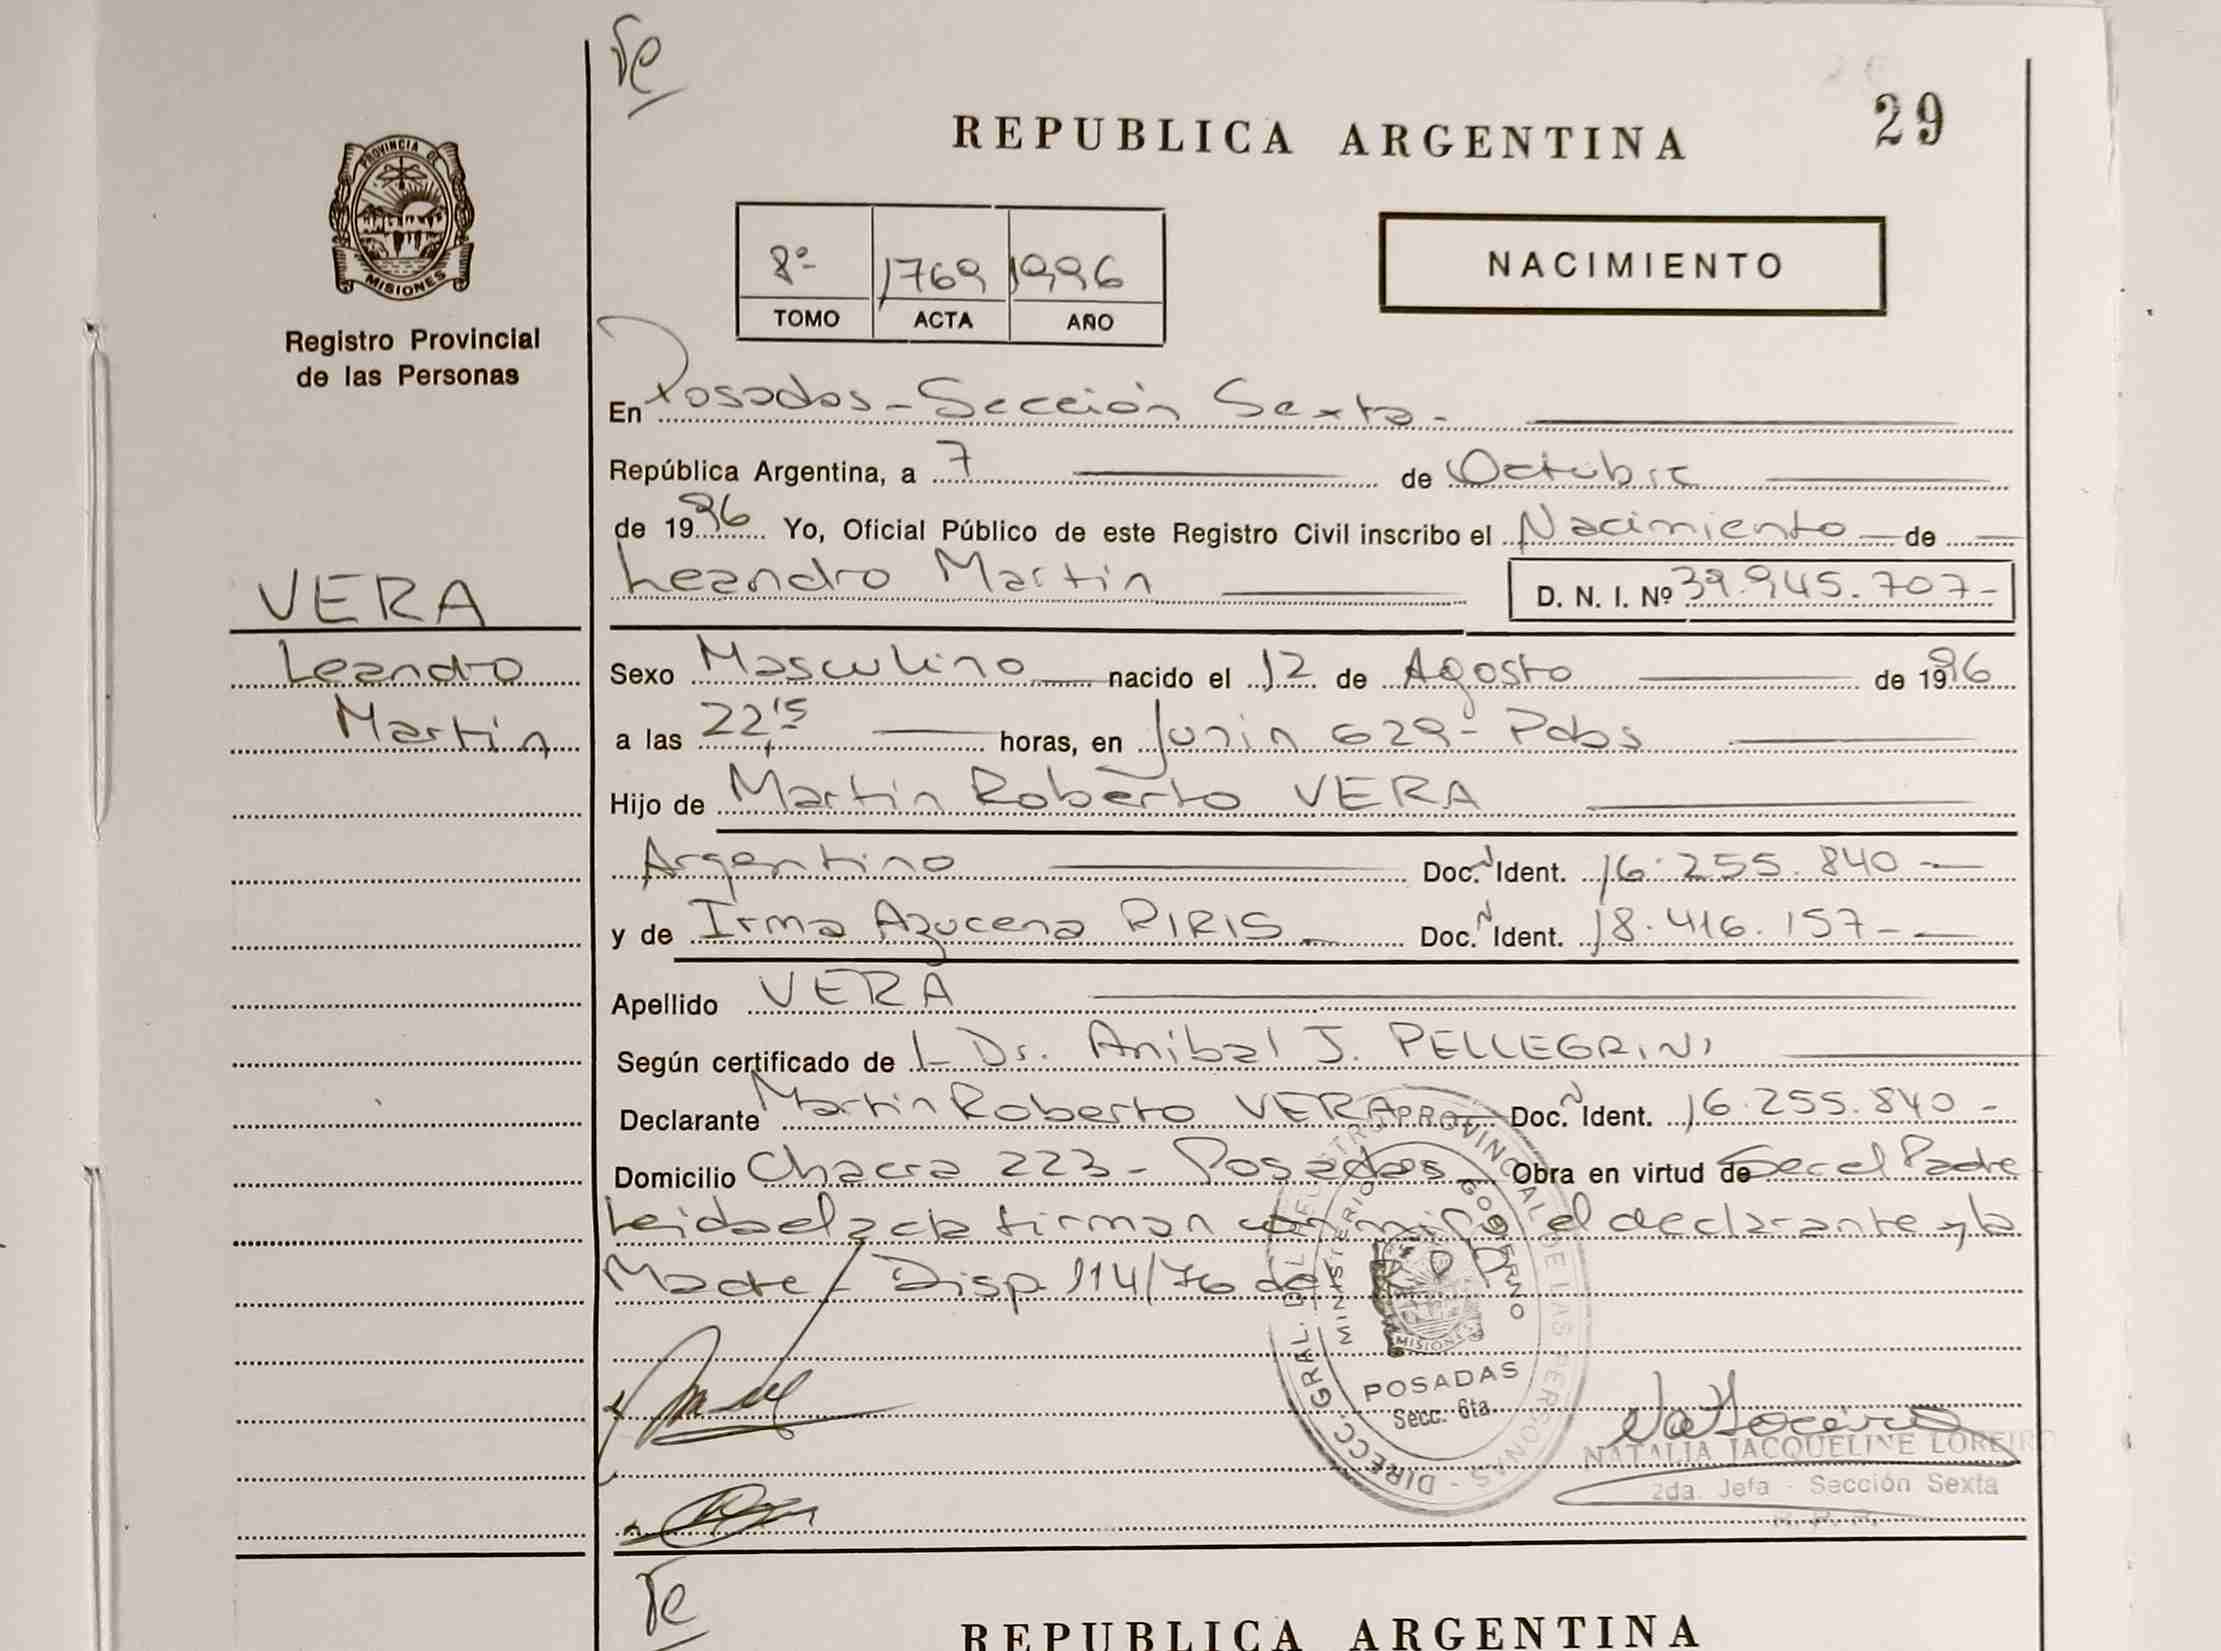 Te
REPUBLICA ARGENTINA
29
PROVINCIA DE
MISIONES
Registro Provincial
de las Personas
8º 1769 1996
TOMO ACTA AÑO
NACIMIENTO
En Posadas - Sección Sexta -
República Argentina, a 7 de Octubre
de 1996 Yo, Oficial Público de este Registro Civil inscribo el Nacimiento de
Leandro Martín D. N. I. Nº 39.945.707-
VERA
Leandro
Martín
Sexo Masculino nacido el 12 de Agosto de 1996
a las 22,15 horas, en Junin 629 - Pdas
Hijo de Martín Roberto VERA
Argentino Doc. N Ident. 16.255.840 -
y de Irma Azucena PIRIS - Doc. N Ident. 18.416.157 -
Apellido VERA
Según certificado de L Dr. Anibal J. PELLEGRINI
Declarante Martín Roberto VERA Doc. N Ident. 16.255.840 -
Domicilio Chacra 223 - Posadas Obra en virtud de Ser el Padre
Leida el acta firman conmigo el declarante y la
Madre - Disp. 114/76 del R.P.P.
DIRECC. GRAL. DEL REGISTRO PROVINCIAL DE LAS PERSONAS -
MINISTERIO GOBIERNO
MISIONES
POSADAS
Secc. 6ta
NATALIA JACQUELINE LOREIRO
2da. Jefa - Sección Sexta
R. P. P.
Te
REPUBLICA ARGENTINA